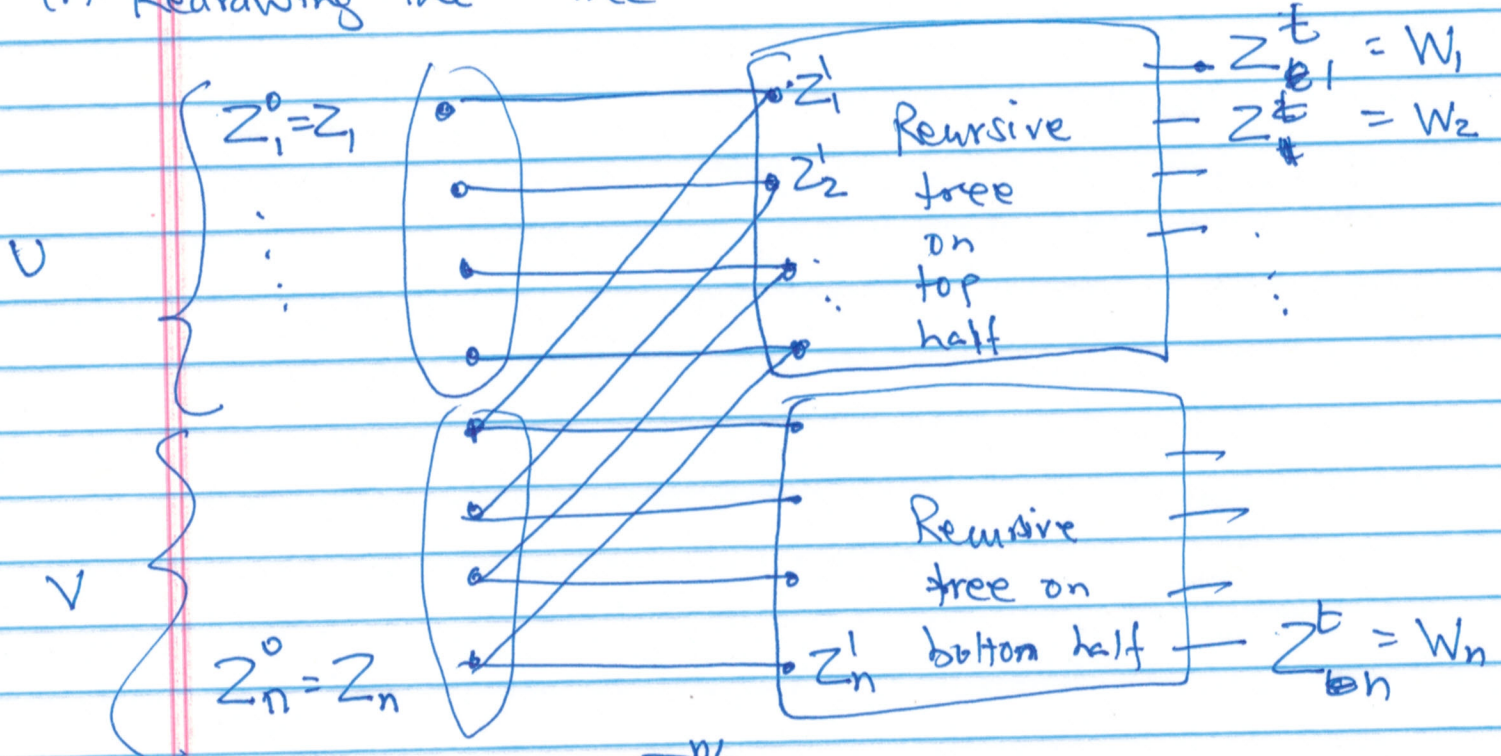 (1) Redrawing the
Z_1^0 = Z_1
Z_1^1
Z_2^1
Reursive
tree
on
top
half
Z_1^t = W_1
Z^t = W_2
U
V
Recursive
tree on
bottom half
Z_n^0 = Z_n
Z_n^1
Z_n^t = W_n